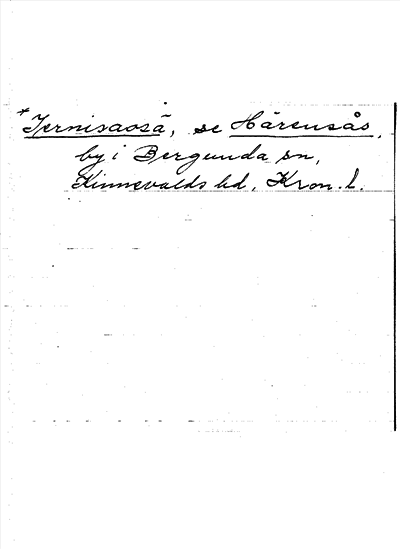 *Jernisaosä, se Härensås,
by i Bergunda sn,
Kinnevalds hd, Kron. l.